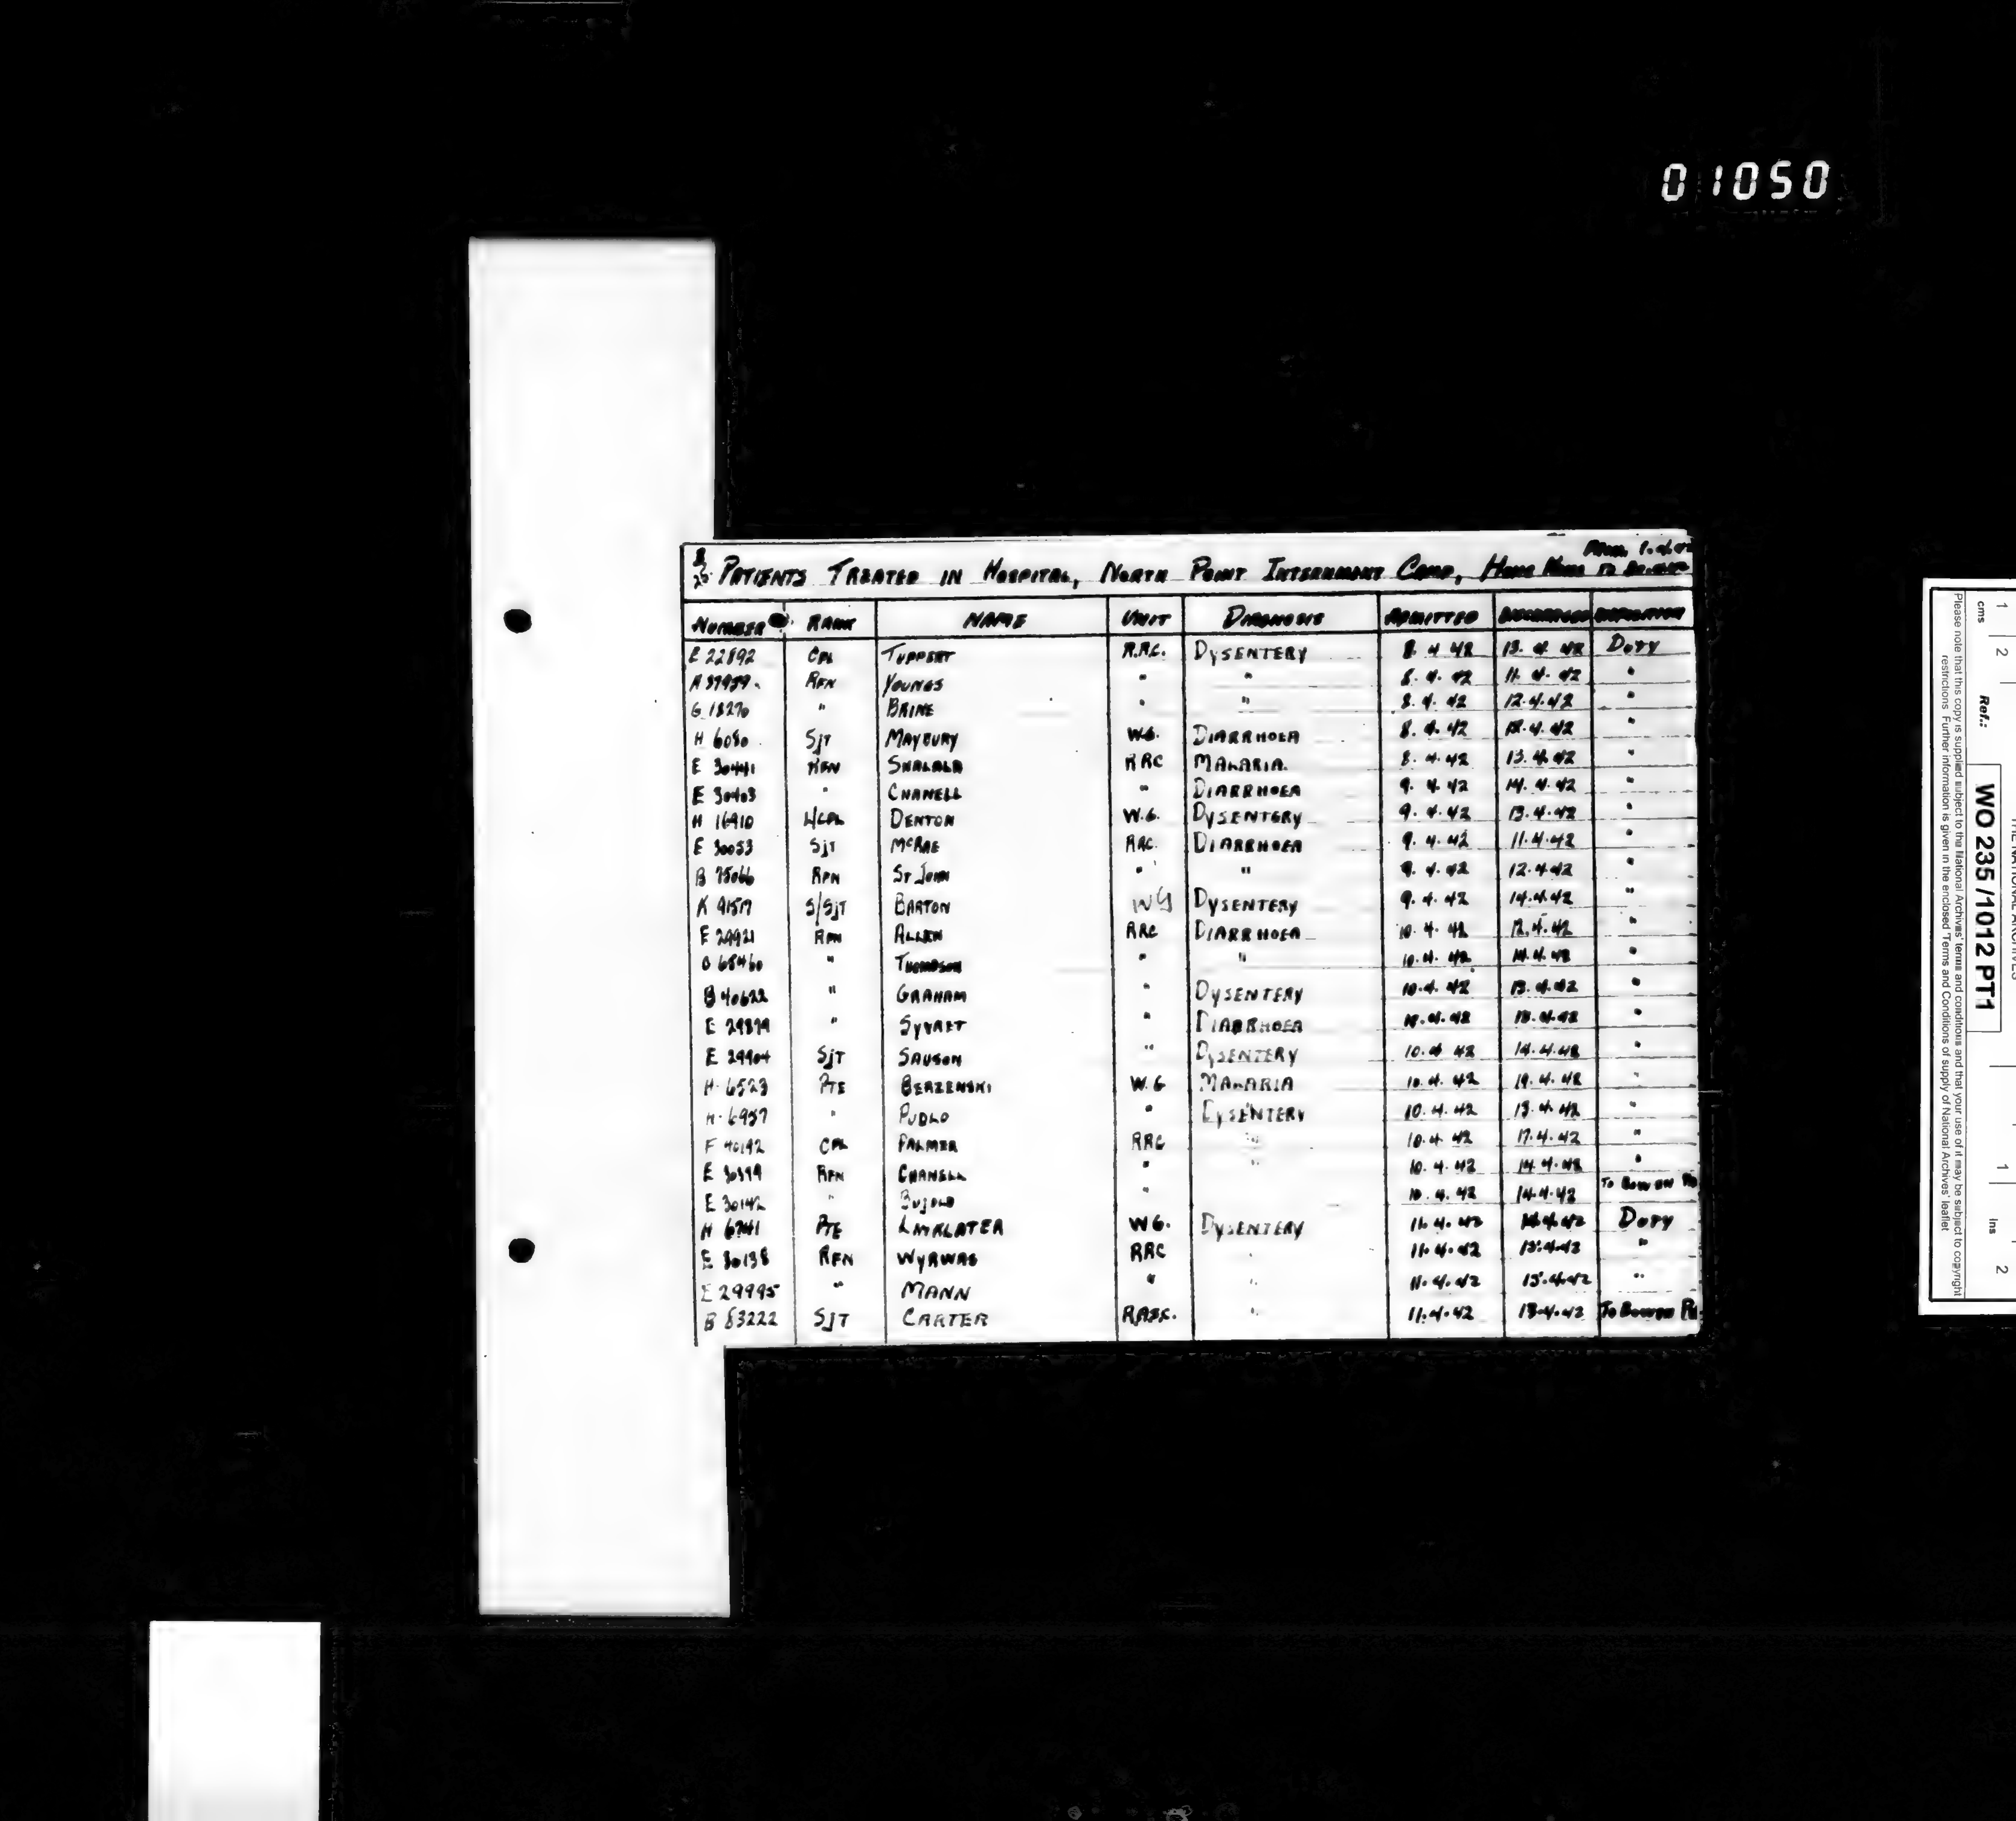 01050
PATIENTS TREATED IN HOSPITAL, NORTH POINT INTERNMENT CAMP, HONG KONG
NUMBER RANK NAME UNIT DIAGNOSIS ADMITTED DISCHARGED
E 22892 CPL TUPPERT R.R.C. DYSENTERY 8. 4 42 13. 4. 42 DUTY
RFN YOUNGS " " 8. 4. 42 11. 4. 42 "
G 18270 " BRINE " " 8. 4. 42 12.4.42 "
H 6080 SJT MAYBURY W.G. DIARRHOEA 8. 4. 42 4.42 "
E 30441 RFN SHALALA RRC MALARIA. 8. 4.42 13. 4. 42 "
E 30403 " CHANELL " DIARRHOEA 9. 4. 42 14. 4. 42 "
H 16910 L/CPL DENTON W.G. DYSENTERY 9. 4. 42 13.4.42 "
E 30053 SJT McRAE RRC. DIARRHOEA 9. 4. 42 11.4.42 "
B 75066 RFN ST JOHN " " 9. 4. 42 12.4.42 "
K S/SJT BARTON WG DYSENTERY 9. 4. 42 14.4.42 "
E 29921 RFN ALLEN RRC DIARRHOEA 10. 4. 42 12.4.42 "
68460 " THOMPSON " " 10.4. 42 14.4.42 "
B 40622 " GRAHAM " DYSENTERY 10.4. 42 13. 4.42 "
E 29879 " SYVRET " DIARRHOEA 10.4.42 "
E 29904 SJT SAUSON " DYSENTERY 10.4 42 14.4.42 "
H. 6523 PTE BERZENSKI W.G MALARIA 10.4. 42 19. 4. 42 "
H. 6957 " PUDLO " DYSENTERY 10.4.42 13.4.42 "
F 40142 CPL PALMER RRC " 10.4 42 17.4.42 "
E 30399 RFN CHANELL " " 10. 4.42 14.4.42 "
E 30142 " BUJOLD " 10. 4. 42 14.4.42 TO BOWEN RD
H PTE LAYALATER W G. DYSENTERY 11. 4. 42 14.4.42 DUTY
E 30138 RFN WYRWAS RRC " 11.4.42 15.4.42 "
E 29995 " MANN " " 11.4.42 15.4.42 "
B 83222 SJT CARTER RASC. " 11.4.42 13.4.42 TO BOWEN RD.
THE NATIONAL ARCHIVES
Ref.: WO 235/1012 PT1
Please note that this copy is supplied subject to the National Archives' terms and conditions and that your use of it may be subject to copyright
restrictions. Further information is given in the enclosed 'Terms and Conditions of supply of National Archives' leaflet
cms 1 2
1 ins 2